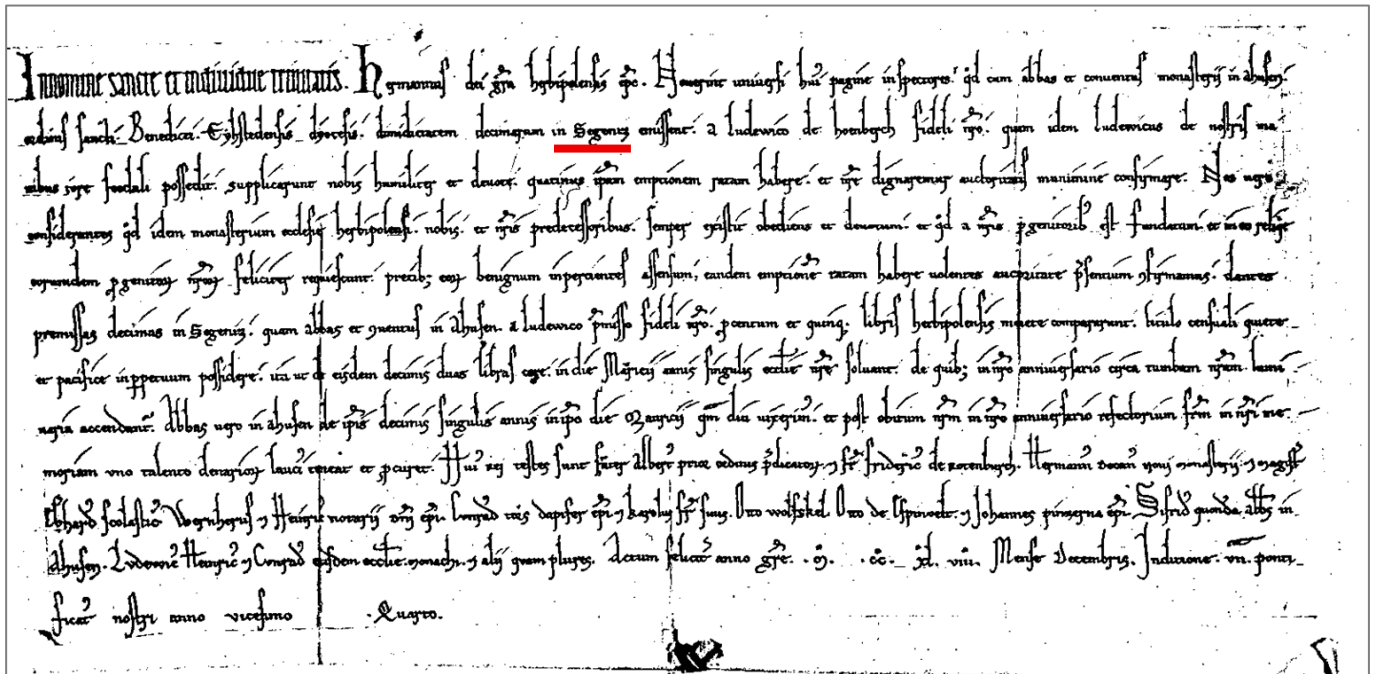 In nomine sancte et individue trinitatis. Hermannus dei gra herbipolensis epc. Noverint universi huius pagine inspectores. qd cum abbas et conventus monasterij in Ahusen.
ordinis sancti Benedicti. Eyhstedensis dyocesis. dimidietatem decimarum in Segeniz emissent. a Ludewico de fideli nro. quam idem Ludewicus de nostris ma
nibus jure feodali possedit. supplicarunt nobis humiliter et devote. quatinus ipsam emptionem ratam habere. et nre dignaremur auctoritatis munimine confirmare. Nos vero
considerantes qd idem monasterium ecclesie herbipolensi. nobis. et nris predecessoribus. semper extitit obediens et devotum. et qd a nris pgenitorib est fundatum. et in eo
eorumdem pgenitorum nrorum feliciter requiescunt. precib; eorum benignum inpercientes assensum, eandem emptione ratam habere volentes auctoritate psentium confirmamus. dantes
premissas decimas in Segeniz. quam abbas et conventus in Ahusen. a Ludewico pmisso fideli nro. p centum et quinq; libris herbipolensis monete compararunt. titulo censuali quiete
et pacifice inperpetuum possidere. ita ut de eisdem decimis duas libras cere. in die Mauricij annis singulis ecclesie nre solvant. de quib; in nro anniversario circa tumbam nram. lumi
naria accendantur. Abbas vero in Ahusen de ipis decimis singulis annis in ipo die Mauricij qm diu vixerimus. et post obitum nrm in nro anniversario refectorium frm in nri me
moriam uno talento denariorum procuret. Huius rei testes sunt frater Albert prior ordinis pdicatorum. et fr fridericus de Rotenburch. Hermann decan novi monasterij. et magist
scolastic. Wernherus et Heinric notarij dni epi. Conrad dapifer epi. et karolus fr suus. Otto wolfskel. Otto de et Johannes pincerna epi. Sifrid quonda abbs in
Ahusen. Ludewic Heinric et Conrad eiusdem ecclie monachi. et alij quam plures. Actum feliciter anno gre. .M. .CC. XL. viii. Mense Decembris. Indictione. vii. ponti
ficat nostri anno vicesimo .Quarto.